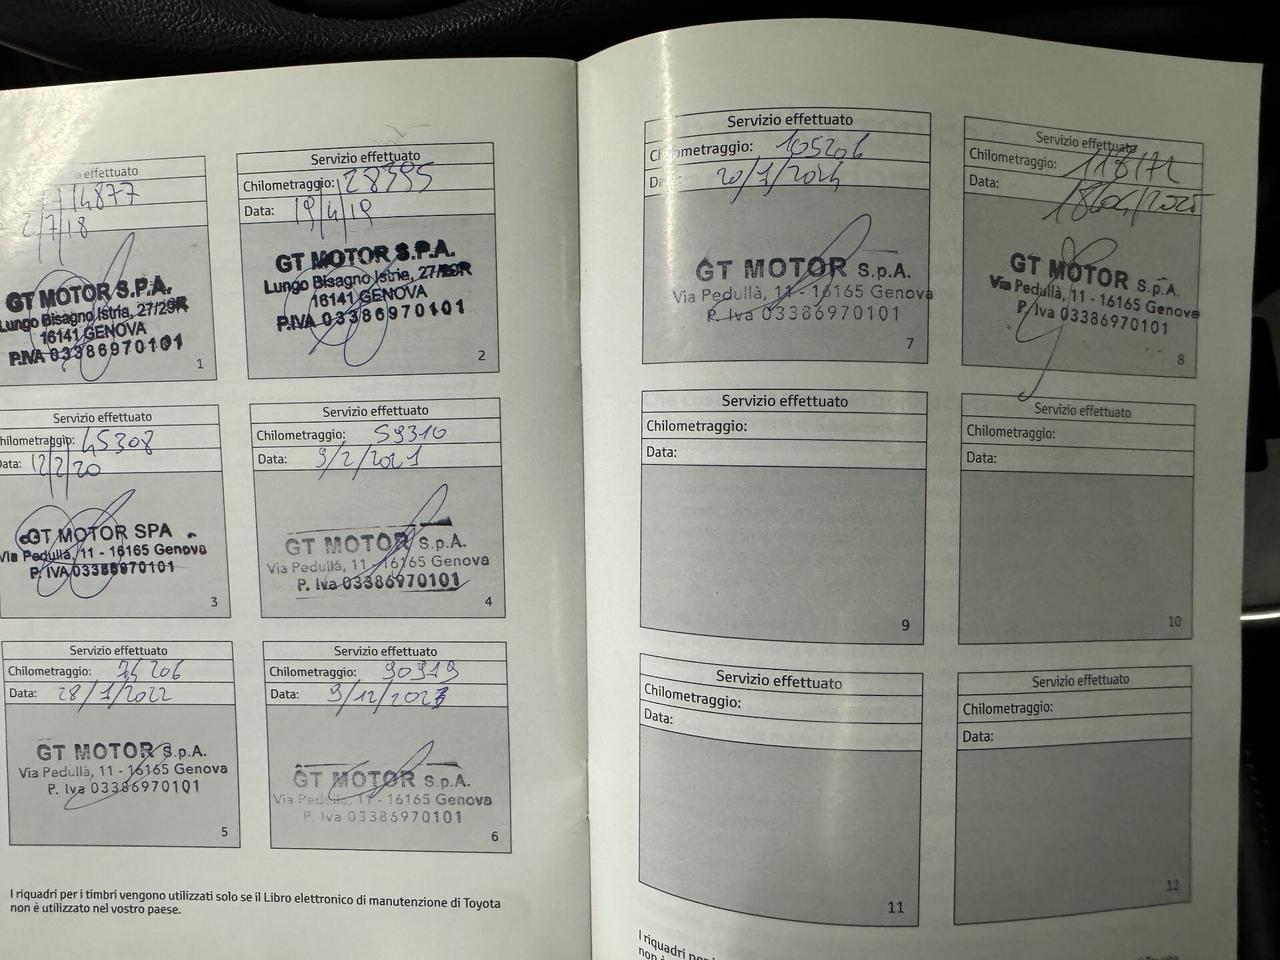 effettuato
14877
2/7/18
GT MOTOR S.P.A.
Lungo Bisagno Istria, 27/29R
16141 GENOVA
P.IVA 03386970101
1
Servizio effettuato
Chilometraggio: 28395
Data: 19/4/19
GT MOTOR S.P.A.
Lungo Bisagno Istria, 27/29R
16141 GENOVA
P.IVA 03386970101
2
Servizio effettuato
hilometraggio: 45308
Data: 12/2/20
GT MOTOR SPA
Via Pedullà, 11 - 16165 Genova
P. IVA 03386970101
3
Servizio effettuato
Chilometraggio: 59310
Data: 9/2/2021
GT MOTOR S.p.A.
Via Pedullà, 11 - 16165 Genova
P. Iva 03386970101
4
Servizio effettuato
Chilometraggio: 76206
Data: 28/1/2022
GT MOTOR S.p.A.
Via Pedullà, 11 - 16165 Genova
P. Iva 03386970101
5
Servizio effettuato
Chilometraggio: 90919
Data: 9/12/2023
GT MOTOR S.p.A.
Via Pedullà, 11 - 16165 Genova
P. Iva 03386970101
6
I riquadri per i timbri vengono utilizzati solo se il Libro elettronico di manutenzione di Toyota
non è utilizzato nel vostro paese.
Servizio effettuato
Chilometraggio: 105206
Data: 20/1/2024
GT MOTOR S.p.A.
Via Pedullà, 11 - 16165 Genova
P. Iva 03386970101
7
Servizio effettuato
Chilometraggio: 118172
Data: 18/04/2025
GT MOTOR S.p.A.
Via Pedullà, 11 - 16165 Genova
P. Iva 03386970101
8
Servizio effettuato
Chilometraggio:
Data:
9
Servizio effettuato
Chilometraggio:
Data:
10
Servizio effettuato
Chilometraggio:
Data:
11
Servizio effettuato
Chilometraggio:
Data:
12
I riquadri per